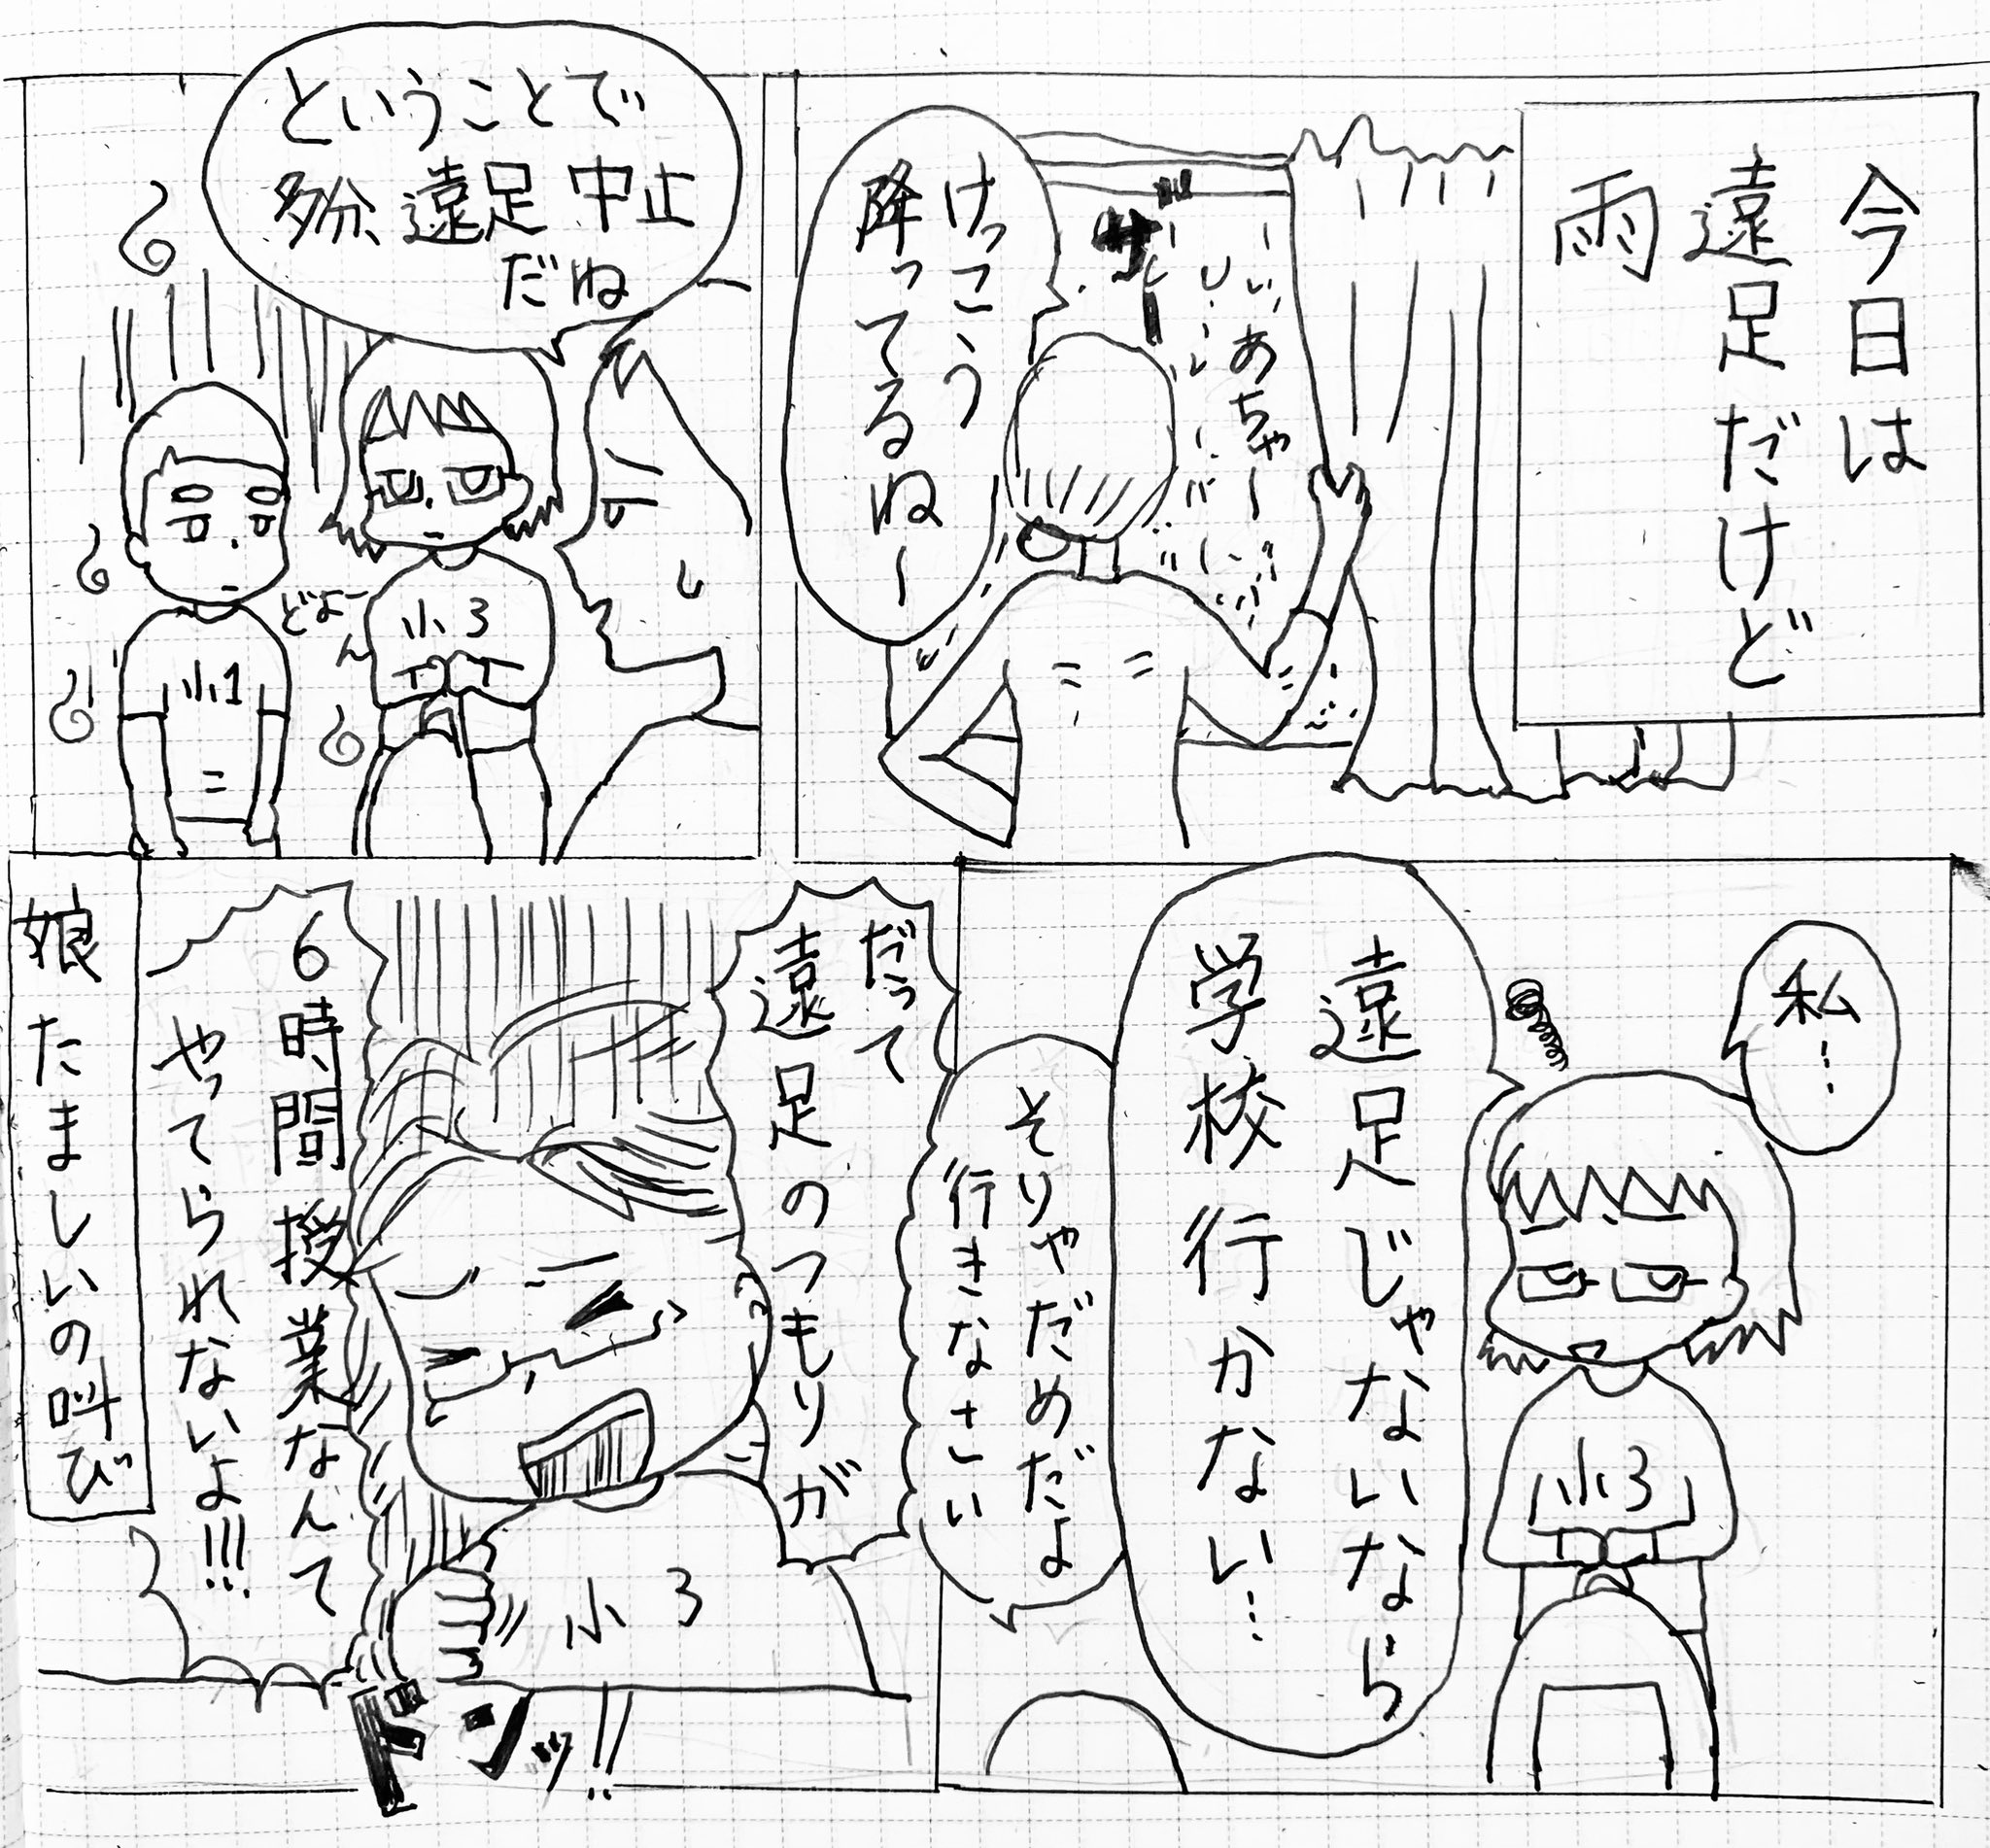 今日は
遠足だけど
雨
あちゃー
ザー
けっこう
降ってるねー
ということで
多分遠足中止
だね
小3
どよーん
小1
私…
遠足じゃないなら
学校行かない…
小3
そりゃだめだよ
行きなさい
だって
遠足のつもりが
6時間授業なんて
やってられないよ!!!
小3
ドンッ!!
娘たましいの叫び